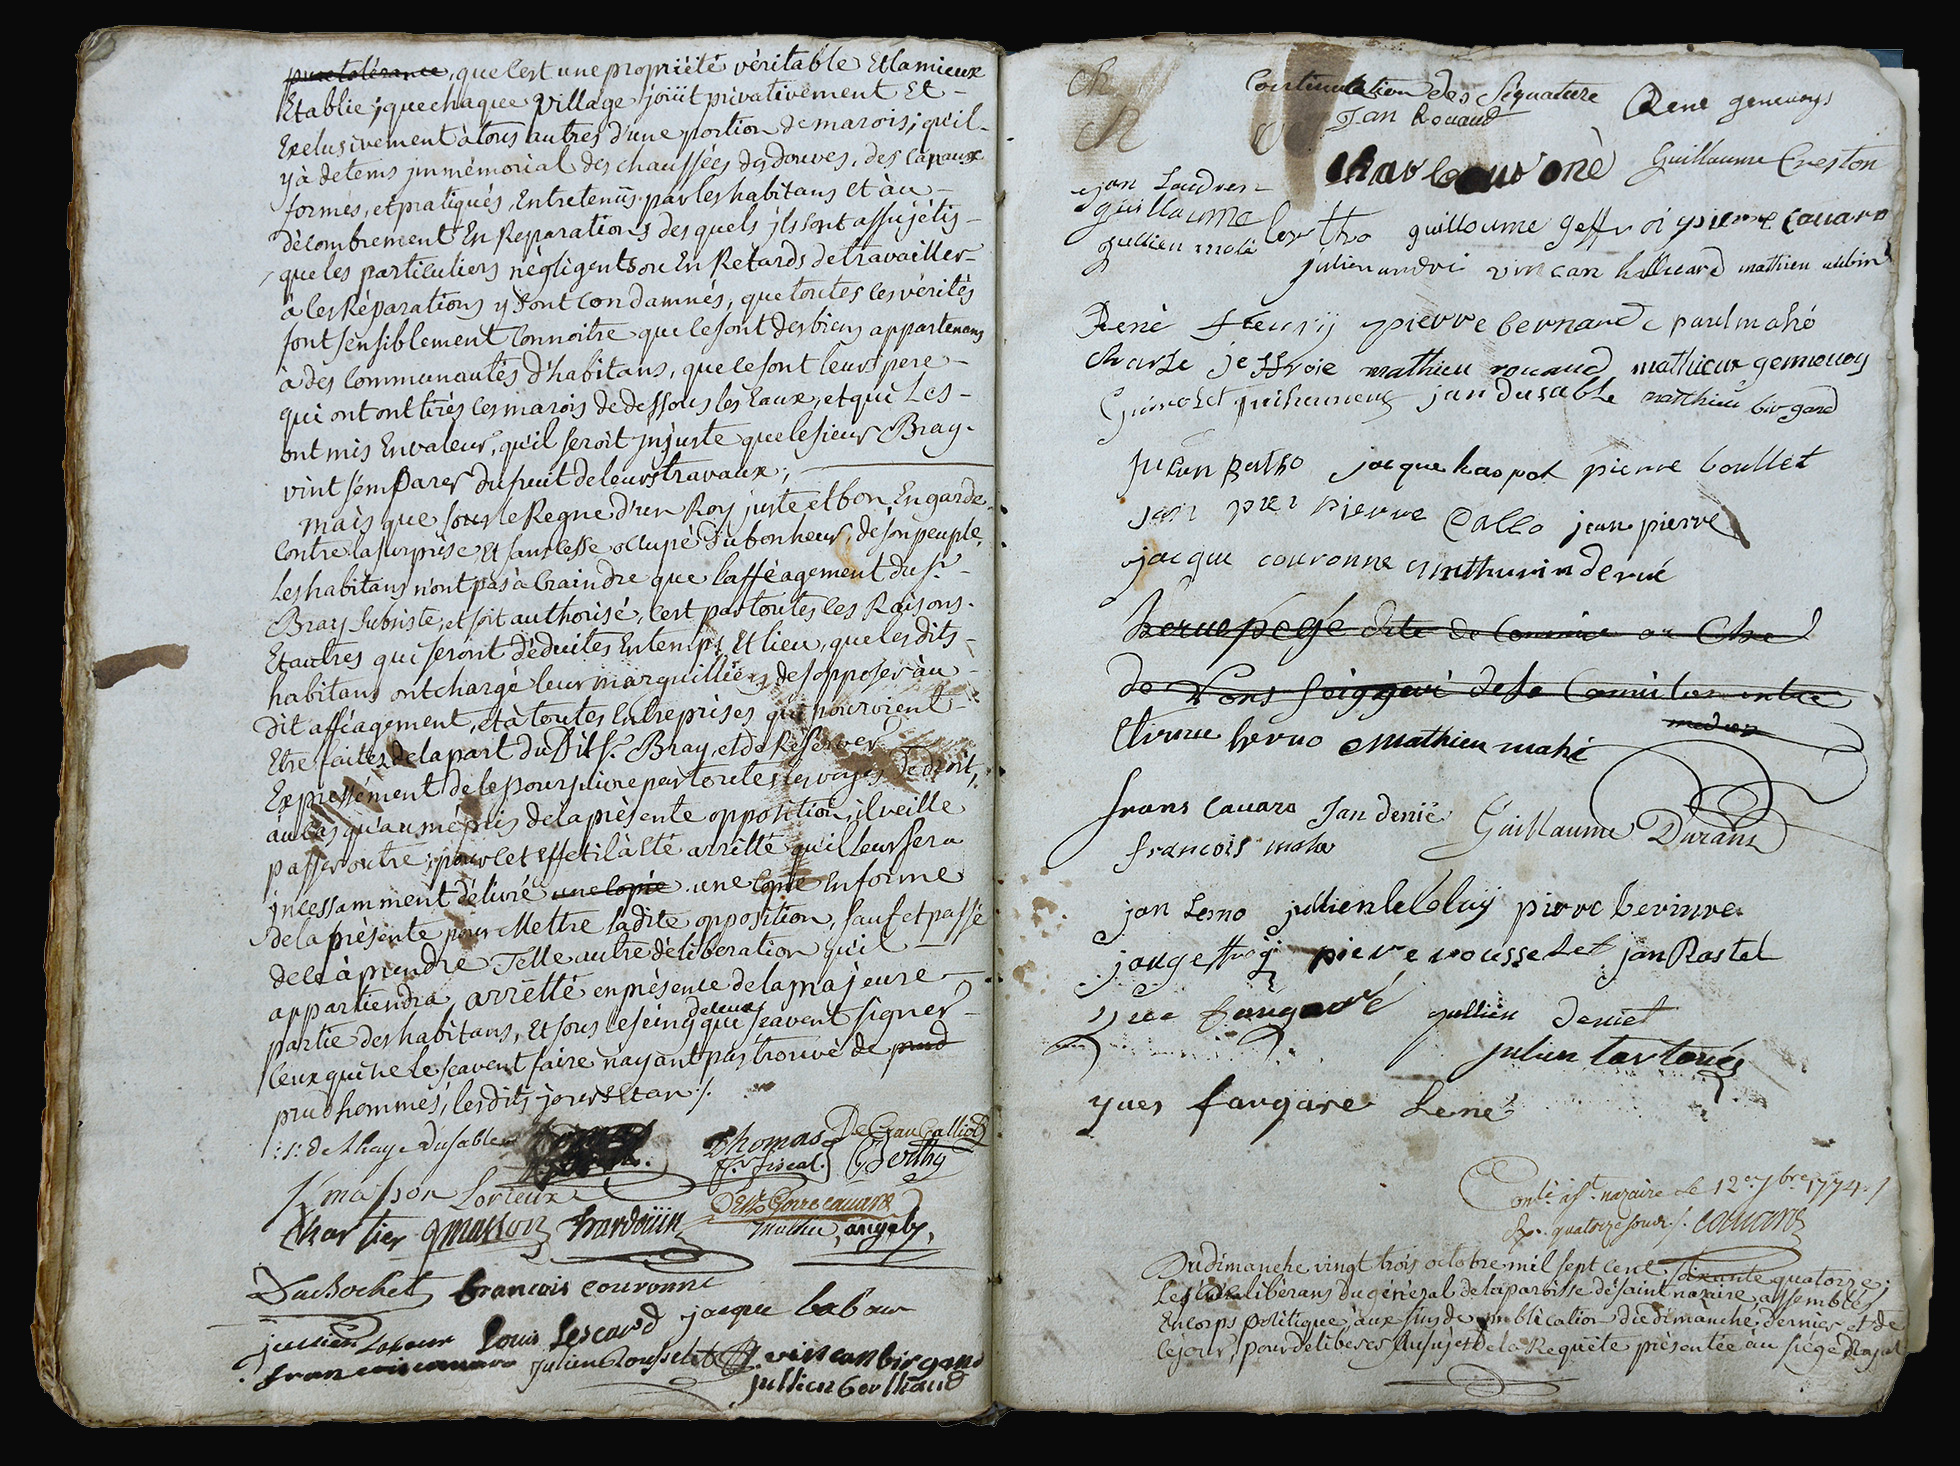 pure tolérance, que c'est une propriété véritable Et la mieux
Etablie; que chaque village joüit privativement Et -
Exclusivement à tous autres d'une portion de marois; qu'il -
y à de tems jmmémorial des chaussées des douves, des canaux
formés, et pratiqués, Entretenüs par les habitans et àu -
décombrement En Reparations desquels jls sont assujétis -
que les particuliers négligents ou En Retards de travailler -
à les Réparations y sont Condamnés, que toutes ces vérités
font sensiblement Connoitre que ce sont des biens appartenans
à des Communautés d'habitans, que ce sont leurs pere -
qui ont ont tirés ces marois de dessous les Eaux, et qui Les -
ont mis En valeur, qu'il seroit jnjuste que le sieur Bray -
vint s'emParer du fruit de leurs travaux;
mais que sous le Regne d'un Roy juste et bon En garde
Contre la surprise Et sans Cesse occupé du bonheur de son peuple,
Les habitans n'ont pas à Craindre que l'afféagement du Sr. -
Bray subsiste, et soit authorisé, C'est par toutes ces Raisons -
Et autres qui seront déduites En temps Et lieu, que les dits -
habitans ont chargé leur marguilliers de s'opposer àu -
Dit afféagement, et à toutes Entreprises qui pourroient -
Etre faites de la part du Dit Sr. Bray, et de Réserver
Expressément de le poursuivre par toutes les voyes de droit,
àu Cas qu'au mépris de la présente opposition, il veille
passer outre; pour Cet Effet il à été arrêtté qu'il leur sera
jncessamment délivré une Copie une Copie En forme
de la présente pour Mettre la dite opposition, sauf et passé
de ce à prendre Telle autre déliberation qu'il
appartiendra, arrêtté en présence de la majeure -
partie des habitans, Et sous le seing de ceux qui scavent signer -
Ceux qui ne le scavent faire n'ayant pas trouvé de prud
prud'hommes, les dits jour Et an ./.
: s: de l'haye Dusable
Thomas
Pr. fiscal.
Berthy
masson Lorieux
Chartier g masson hardoüin
mathieu angebo
DuBochet francois couronne
jullien Lafour Louis Lescard jacque labour
Julien Rousselet vincan birgand
jullien berthaud
Continuation des Signature
René genevoys
Jan Rouaud
Guillaume Creston
jan Landren
guillaume
jullien mahé
guilloume geffroi pierre couaro
julien andre vincan halluard mathieu aubin
René fleury pierre bernard paul mahé
Charle jeffroie mathieu rouaud mathieur gennevoy
jan dusable matthieu birgand
julien Bertho jacque haspot pierre boullet
jan pier pierre Callo jean pierre
jacque couronne mathurin dervé
Etienne hervo Mathieu mahé
frans cavaro Jan denié Guillaume Durand
francois maho
jan Lemo jullien leCeluy pierre berinve
jan geffroy piere rousselet jan Rastel
jullien deniet
julien tartoué
yues fangare Lené
Conté. à st. nazaire le 12e. 7bre. 1774 ./
Rx. quatorze sous ./. Couard
Du dimanche vingt trois octobre mil sept cent soixante quatorze;
Les déliberans du général de la paroisse de saint nazaire assemblés
En corps politique, aux fins de publication du dimanche dernier et de
ce jour, pour deliberer Au sujet de la Requête présentée àu siége Royal